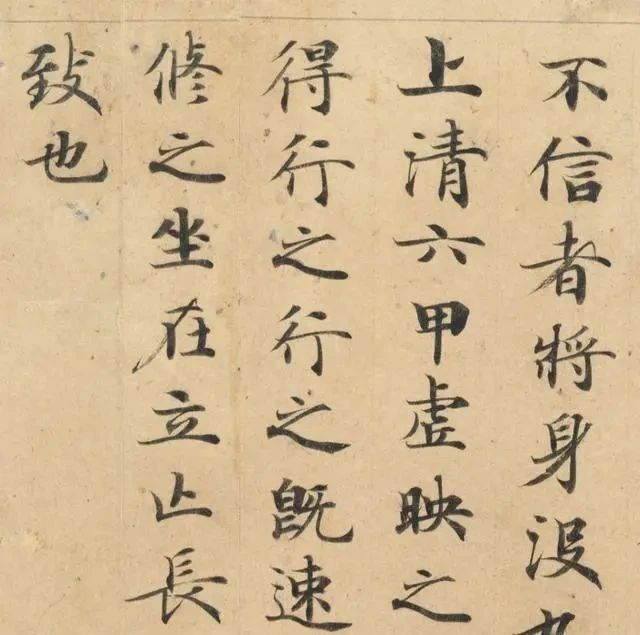 不信者將身没
上清六甲虚映之
得行之行之既速
修之坐在立亡長
致也